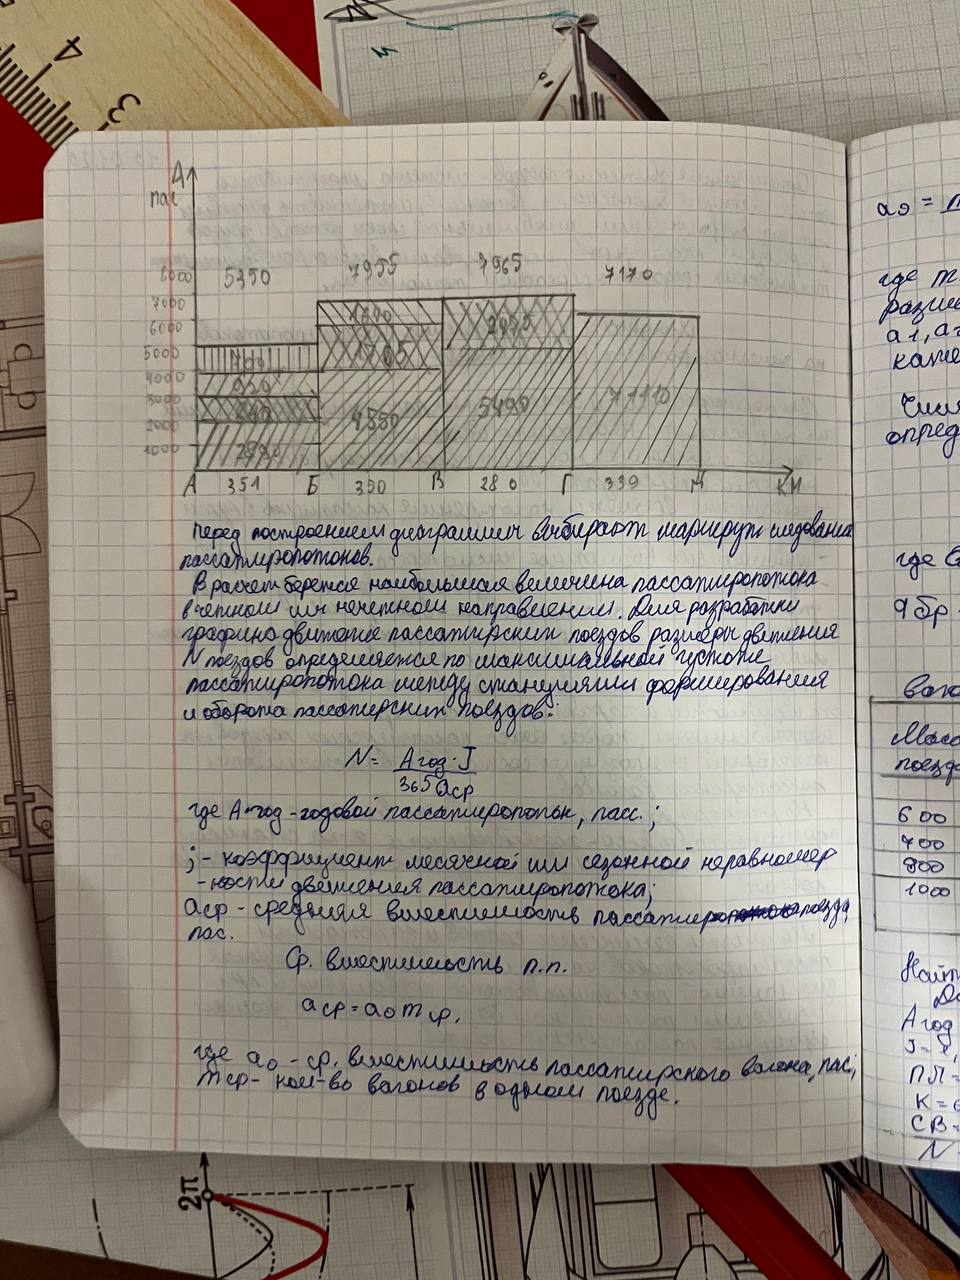 4
3
А
пас
8000
7000
6000
5000
4000
3000
2000
1000
5350 7955 7965 7170
4550 5490
А 351 Б 350 В 280 Г 339 Д КМ
Перед построением диаграммы выбирают маршрут следования
пассажиропотоков.
В расчет берется наибольшая величина пассажиропотока
в четном или нечетном направлении. Для разработки
графика движение пассажирских поездов размеры движения
N поездов определяется по максимальной густоте
пассажиропотока между станциями формирования
и оборота пассажирских поездов:
N = Aгод · J
365 аср
где Aгод - годовой пассажиропоток, пасс.;
j - коэффициент месячной или сезонной неравномер
-ности движения пассажиропотока;
аср - средняя вместимость пассажир поезда,
пас.
Ср. вместимость п.п.
аср = а₀ mср.
где а₀ - ср. вместимость пассажирского вагона, пас.;
mср - кол-во вагонов в одном поезде.
где m
разме
а1, а
кажд
Числ
опред
где
q бр
ваго
Масса
поезда
600
700
800
1000
Найт
Aгод
J =
ПЛ =
К =
СВ =
N
2π